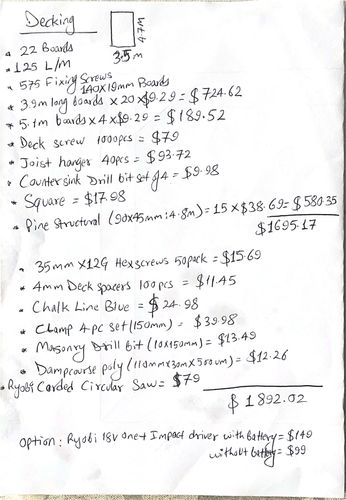 Decking
4.7M
3.5 m
• 22 Boards
• 125 L/M
• 575 Fixing Screws
140x19mm Boards
• 3.9m long boards x 20 x $9.29 = $724.62
• 5.1m boards x 4 x $9.29 = $189.52
• Deck screw 1000pcs = $79
• Joist hanger 40pcs = $93.72
• Countersink Drill bit set of 4 = $9.98
• Square = $17.98
• Pine Structural (90x45mm:4.8m) = 15 x $38.69 = $580.35
$1695.17
• 35mm x 12G Hexscrews 50pack = $15.69
• 4mm Deck spacers 100pcs = $11.45
• Chalk Line Blue = $24.98
• Clamp 4 pc set (150mm) = $39.98
• Masonry Drill bit (10x150mm) = $13.49
• Dampcourse poly (110mmx30mx500um) = $12.26
• Ryobi Corded Circular Saw = $79
$1892.02
Option: Ryobi 18V one+ Impact driver with battery = $149
without battery = $99